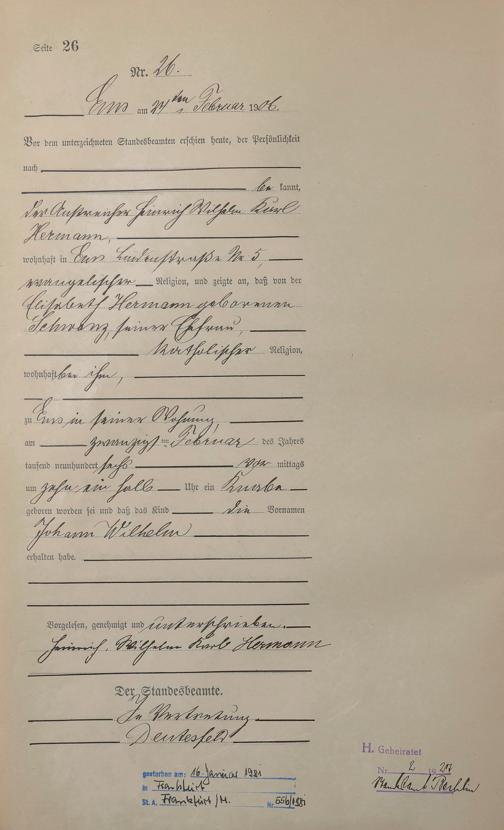 Seite 26
Nr. 26.
Ems am 27ten Februar 1906.
Vor dem unterzeichneten Standesbeamten erschien heute, der Persönlichkeit
nach
be kannt,
der Anstreicher Heinrich Wilhelm Karl
Hermann,
wohnhaft in Ems Lindenstraße No 5,
evangelischer Religion, und zeigte an, daß von der
Elisabeth Hermann geborenen
Schwenz, seiner Ehefrau,
katholischer Religion,
wohnhaft bei ihm,
zu Ems in seiner Wohnung,
am zwanzigsten Februar des Jahres
tausend neunhundert sechs vor mittags
um zehn ein halb Uhr ein Knabe
geboren worden sei und daß das Kind die Vornamen
Johann Wilhelm
erhalten habe.
Vorgelesen, genehmigt und unterschrieben.
Heinrich. Wilhelm Karl Hermann
Der Standesbeamte.
In Vertretung
gestorben am: 16. Januar 1981
in Frankfurt
St. A. Frankfurt/M. Nr. 556/1981
H. Geheiratet
Nr. 2 19
Standesamt